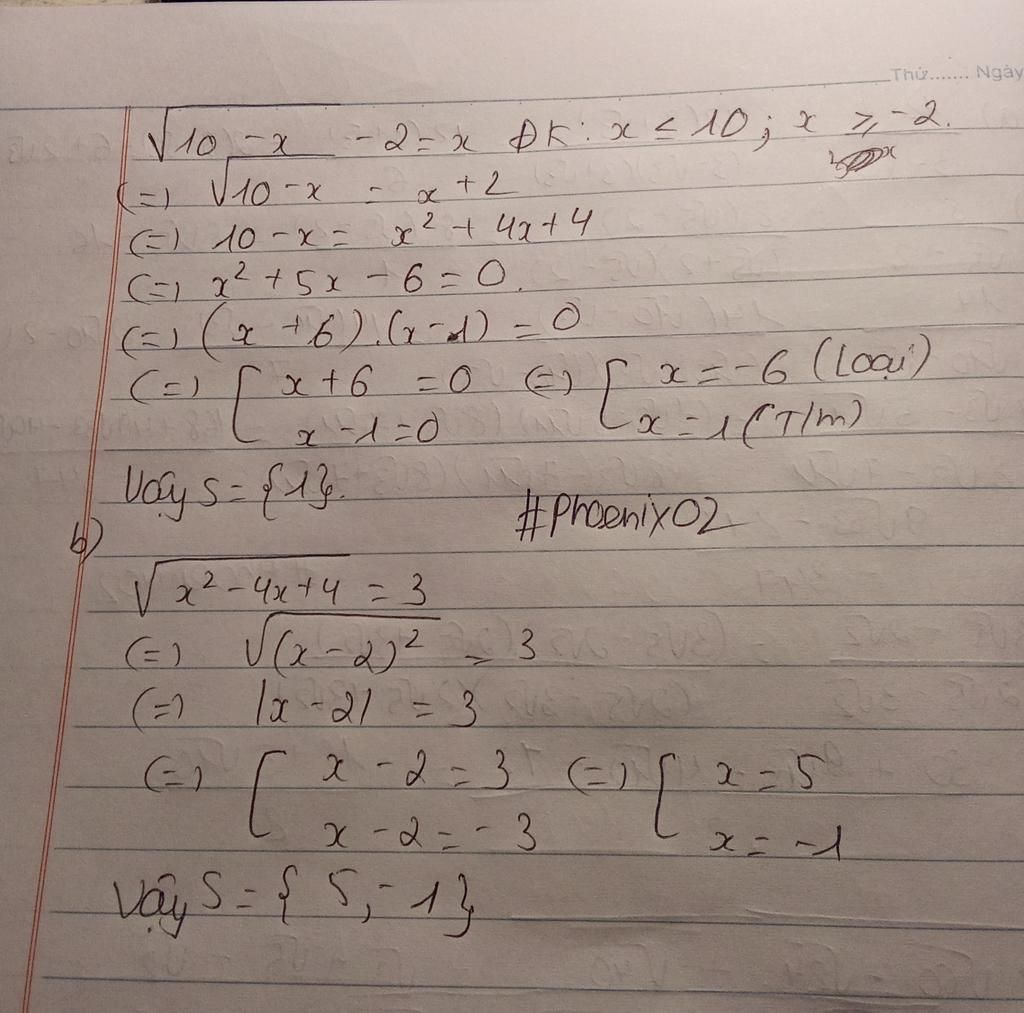 Thứ....... Ngày
√10 - x - 2 = x ĐK: x ≤ 10; x ≥ -2.
(=) √10 - x = x + 2
(=) 10 - x = x² + 4x + 4
(=) x² + 5x - 6 = 0.
(=) (x + 6).(x - 1) = 0
(=) [ x + 6 = 0 (=) [ x = -6 (Loại)
x - 1 = 0 x = 1 (T/m)
Vậy S = {1}.
#Phoenix02
b)
√x² - 4x + 4 = 3
(=) √(x - 2)² = 3
(=) |x - 2| = 3
(=) [ x - 2 = 3 (=) [ x = 5
x - 2 = -3 x = -1
Vậy S = { 5, -1}